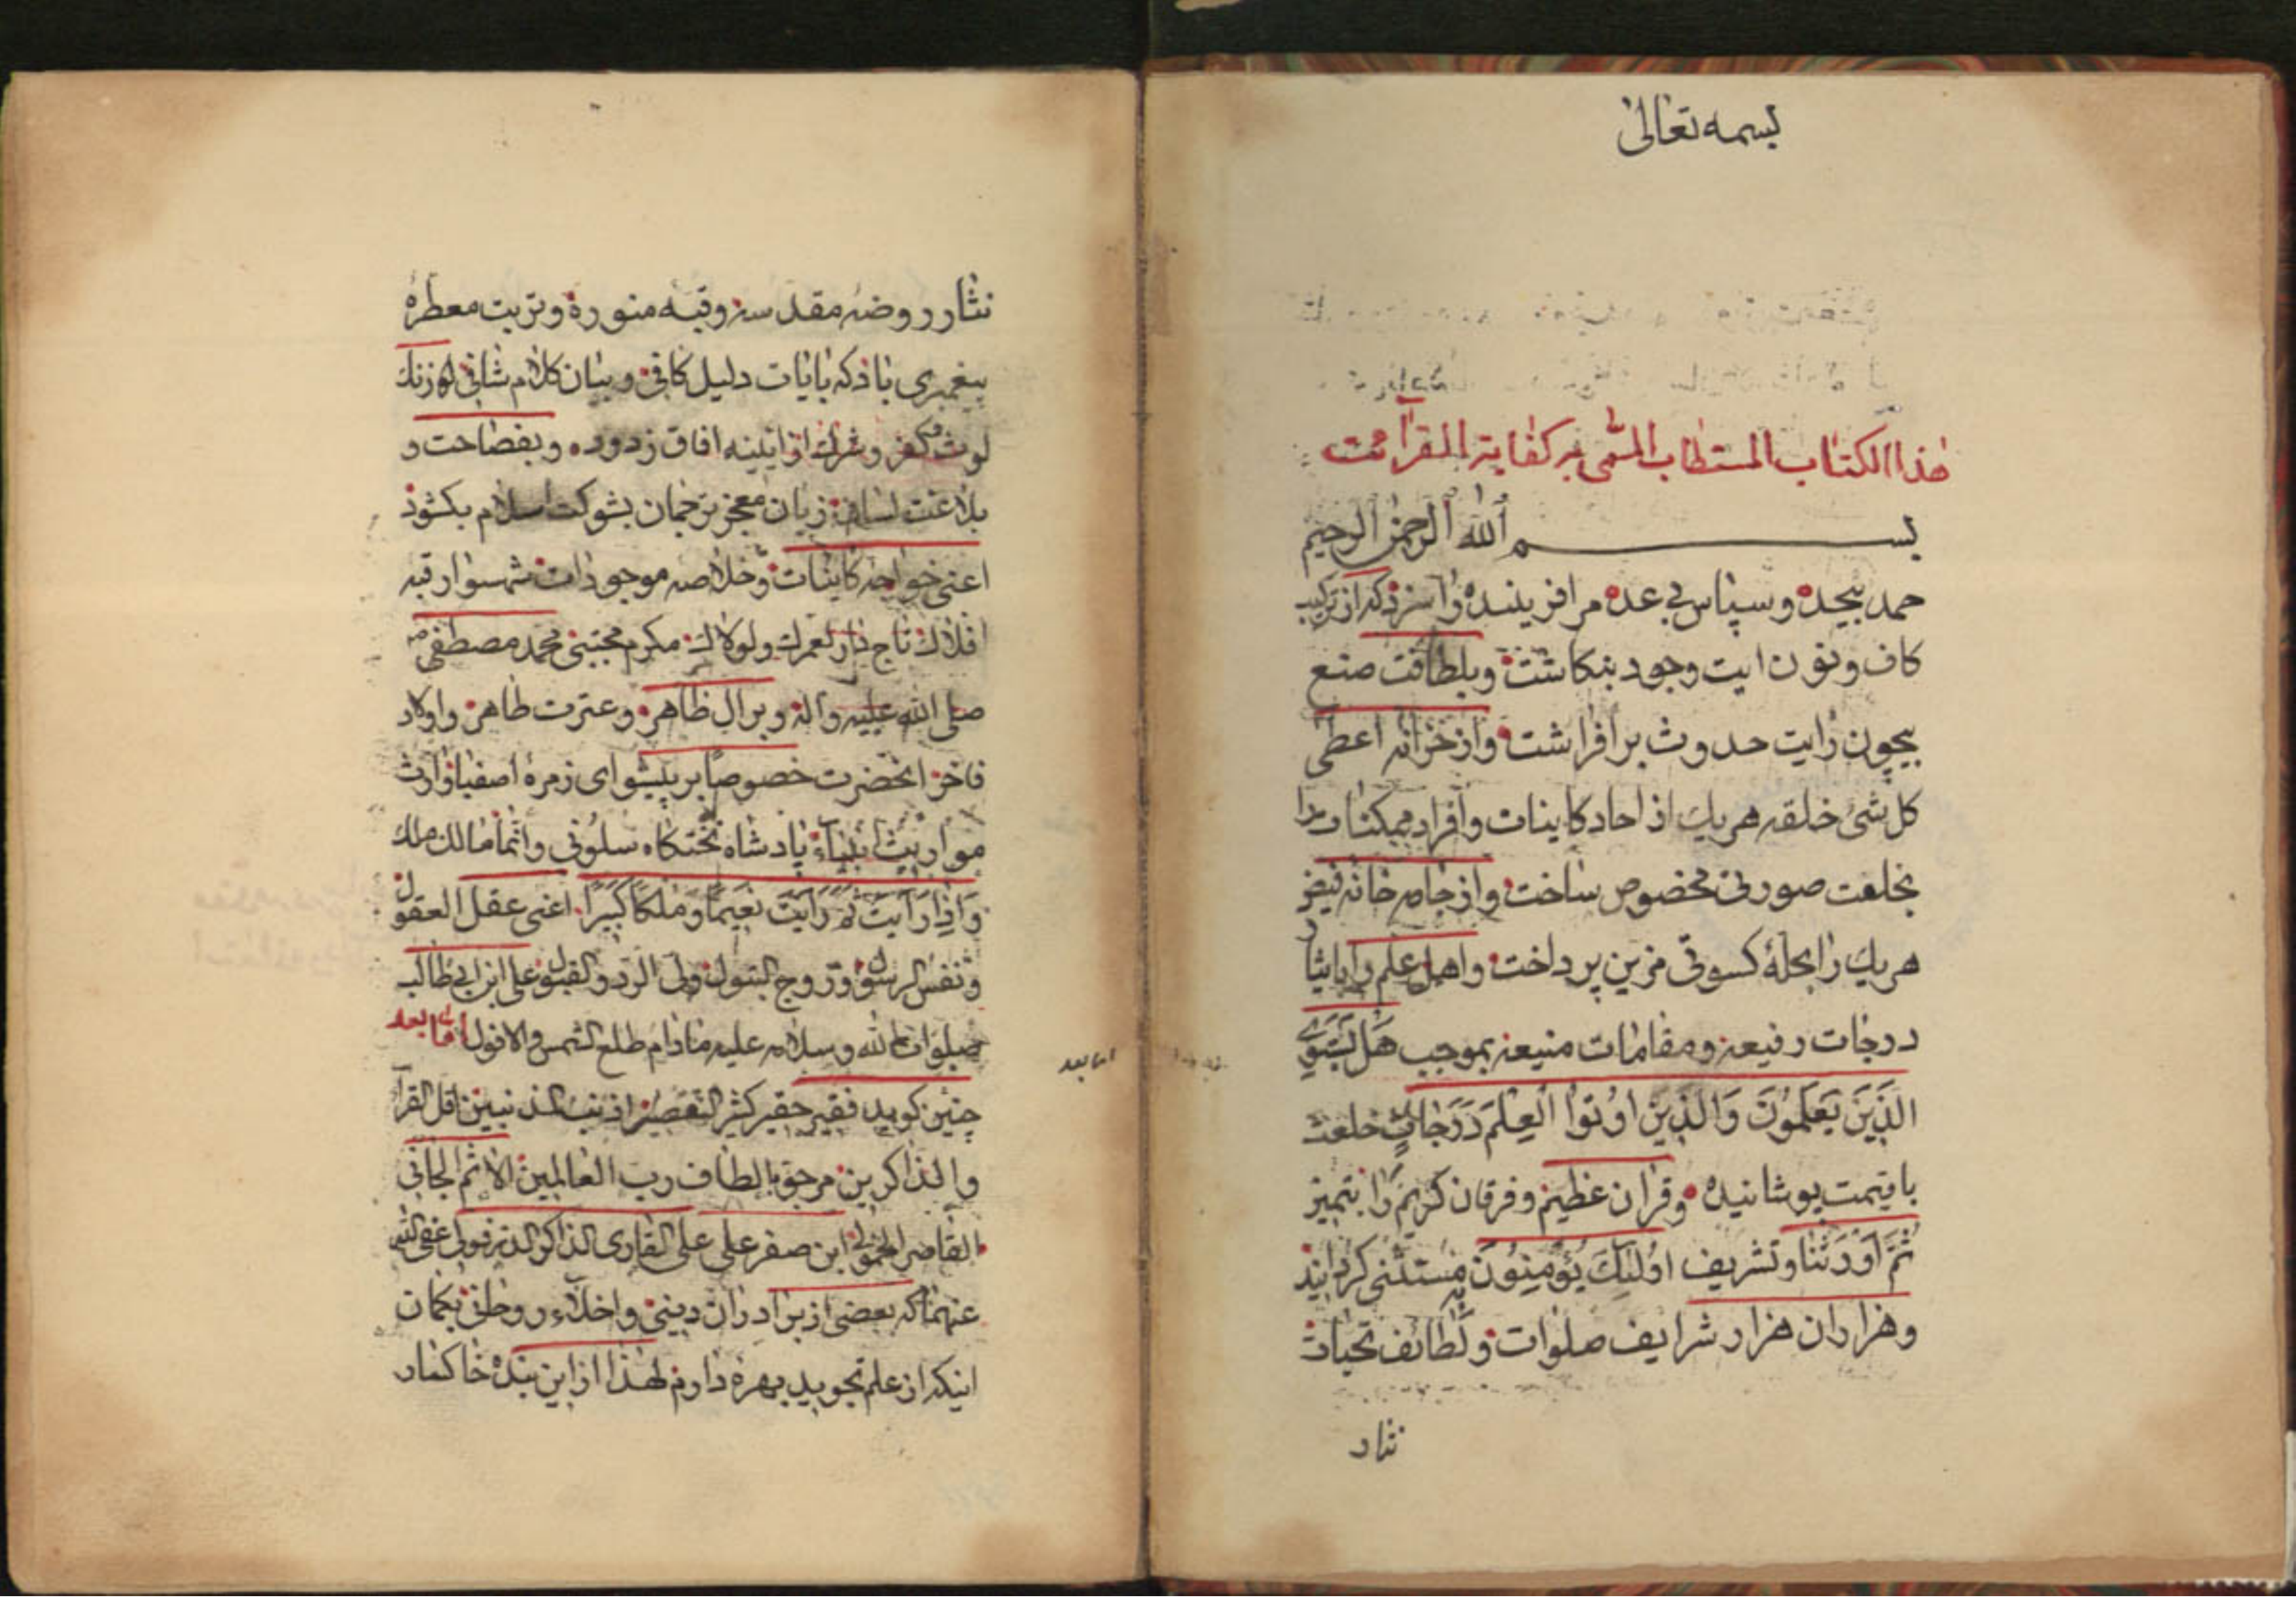 بسمه تعالى
هذا الكتاب المستطاب المسمى به كفاية القرائت
بسم الله الرحمن الرحيم
حمد بیحده و سپاس بی عده مر افریننده را سزد که از ترکیب
کاف و نون ایت وجود بنکاشت و بلطافت صنع
بیچون رایت حدوث برافراشت و از خزانه اعطی
کل شیٔ خلقه هر یک از احاد کاینات و افراد ممکنات را
بخلعت صورتی مخصوص ساخت و از جامه خانه فیض
هر یک را بحلهٔ کسوتی مزین پرداخت و اهل علم را بایثار
درجات رفیعه و مقامات منیعه بموجب هَل یَستَوِی
الَّذینَ یَعلَمُونَ وَالَّذینَ اُوتُوا العِلمَ دَرَجاتٍ خلعت
با قیمت پوشانیده و قران عظیم و فرقان کریم را بتمیز
ثُمَّ اَورَثنا و تشریف اُولئِکَ یُؤمِنُونَ بِه مستثنی کردانید
و هزاران هزار شرایف صلوات و لطائف تحیات
نثار
نثار روضهٔ مقدسه و قبه منوره و تربت معطره
پیغمبری باد که بایات دلیل کافی و بیان کلام شافی لوزنك
لوث کفر و شرك از ایینه افاق زدوده و بفصاحت و
بلاغت لسان زبان معجز ترجمان بشوکت اسلام بکشود
اعنی خواجه کاینات و خلاصه موجودات شهسوار قبه
افلاك تاج دار لعمرك و لولاك مکرم مجتبی محمد مصطفی
صلی الله علیه و اله و بر ال ظاهر و عترت طاهر و اولاد
فاخر انحضرت خصوصا بر پیشوای زمرهٔ اصفیا وارث
مواریث انبیاء پادشاه تختکاه سلونی و انما مالك ملك
وَاِذا رَاَیتَ ثَمَّ رَاَیتَ نَعیماً وَ مُلکاً کَبیراً اعنی عقل العقول
و نفس الرسول و زوج البتول ولی الرد و القبول علی ابن ابی طالب
صلوات الله و سلامه علیه مادام طلع الشمس والافول اما بعد
اما بعد
چنین کوید فقیر حقیر کثیر التقصیر اذنب المذنبین اقل القراء
والذاکرین مرجو بالطاف رب العالمین الاثم الجانی
القاصر ابن صفر علی علی القاری الذاکر عفی الله
عنهما که بعضی از برادران دینی و اخلاء روحانی بکمان
اینکه از علم تجوید بهره دارم لهذا از این بنده خاکسار